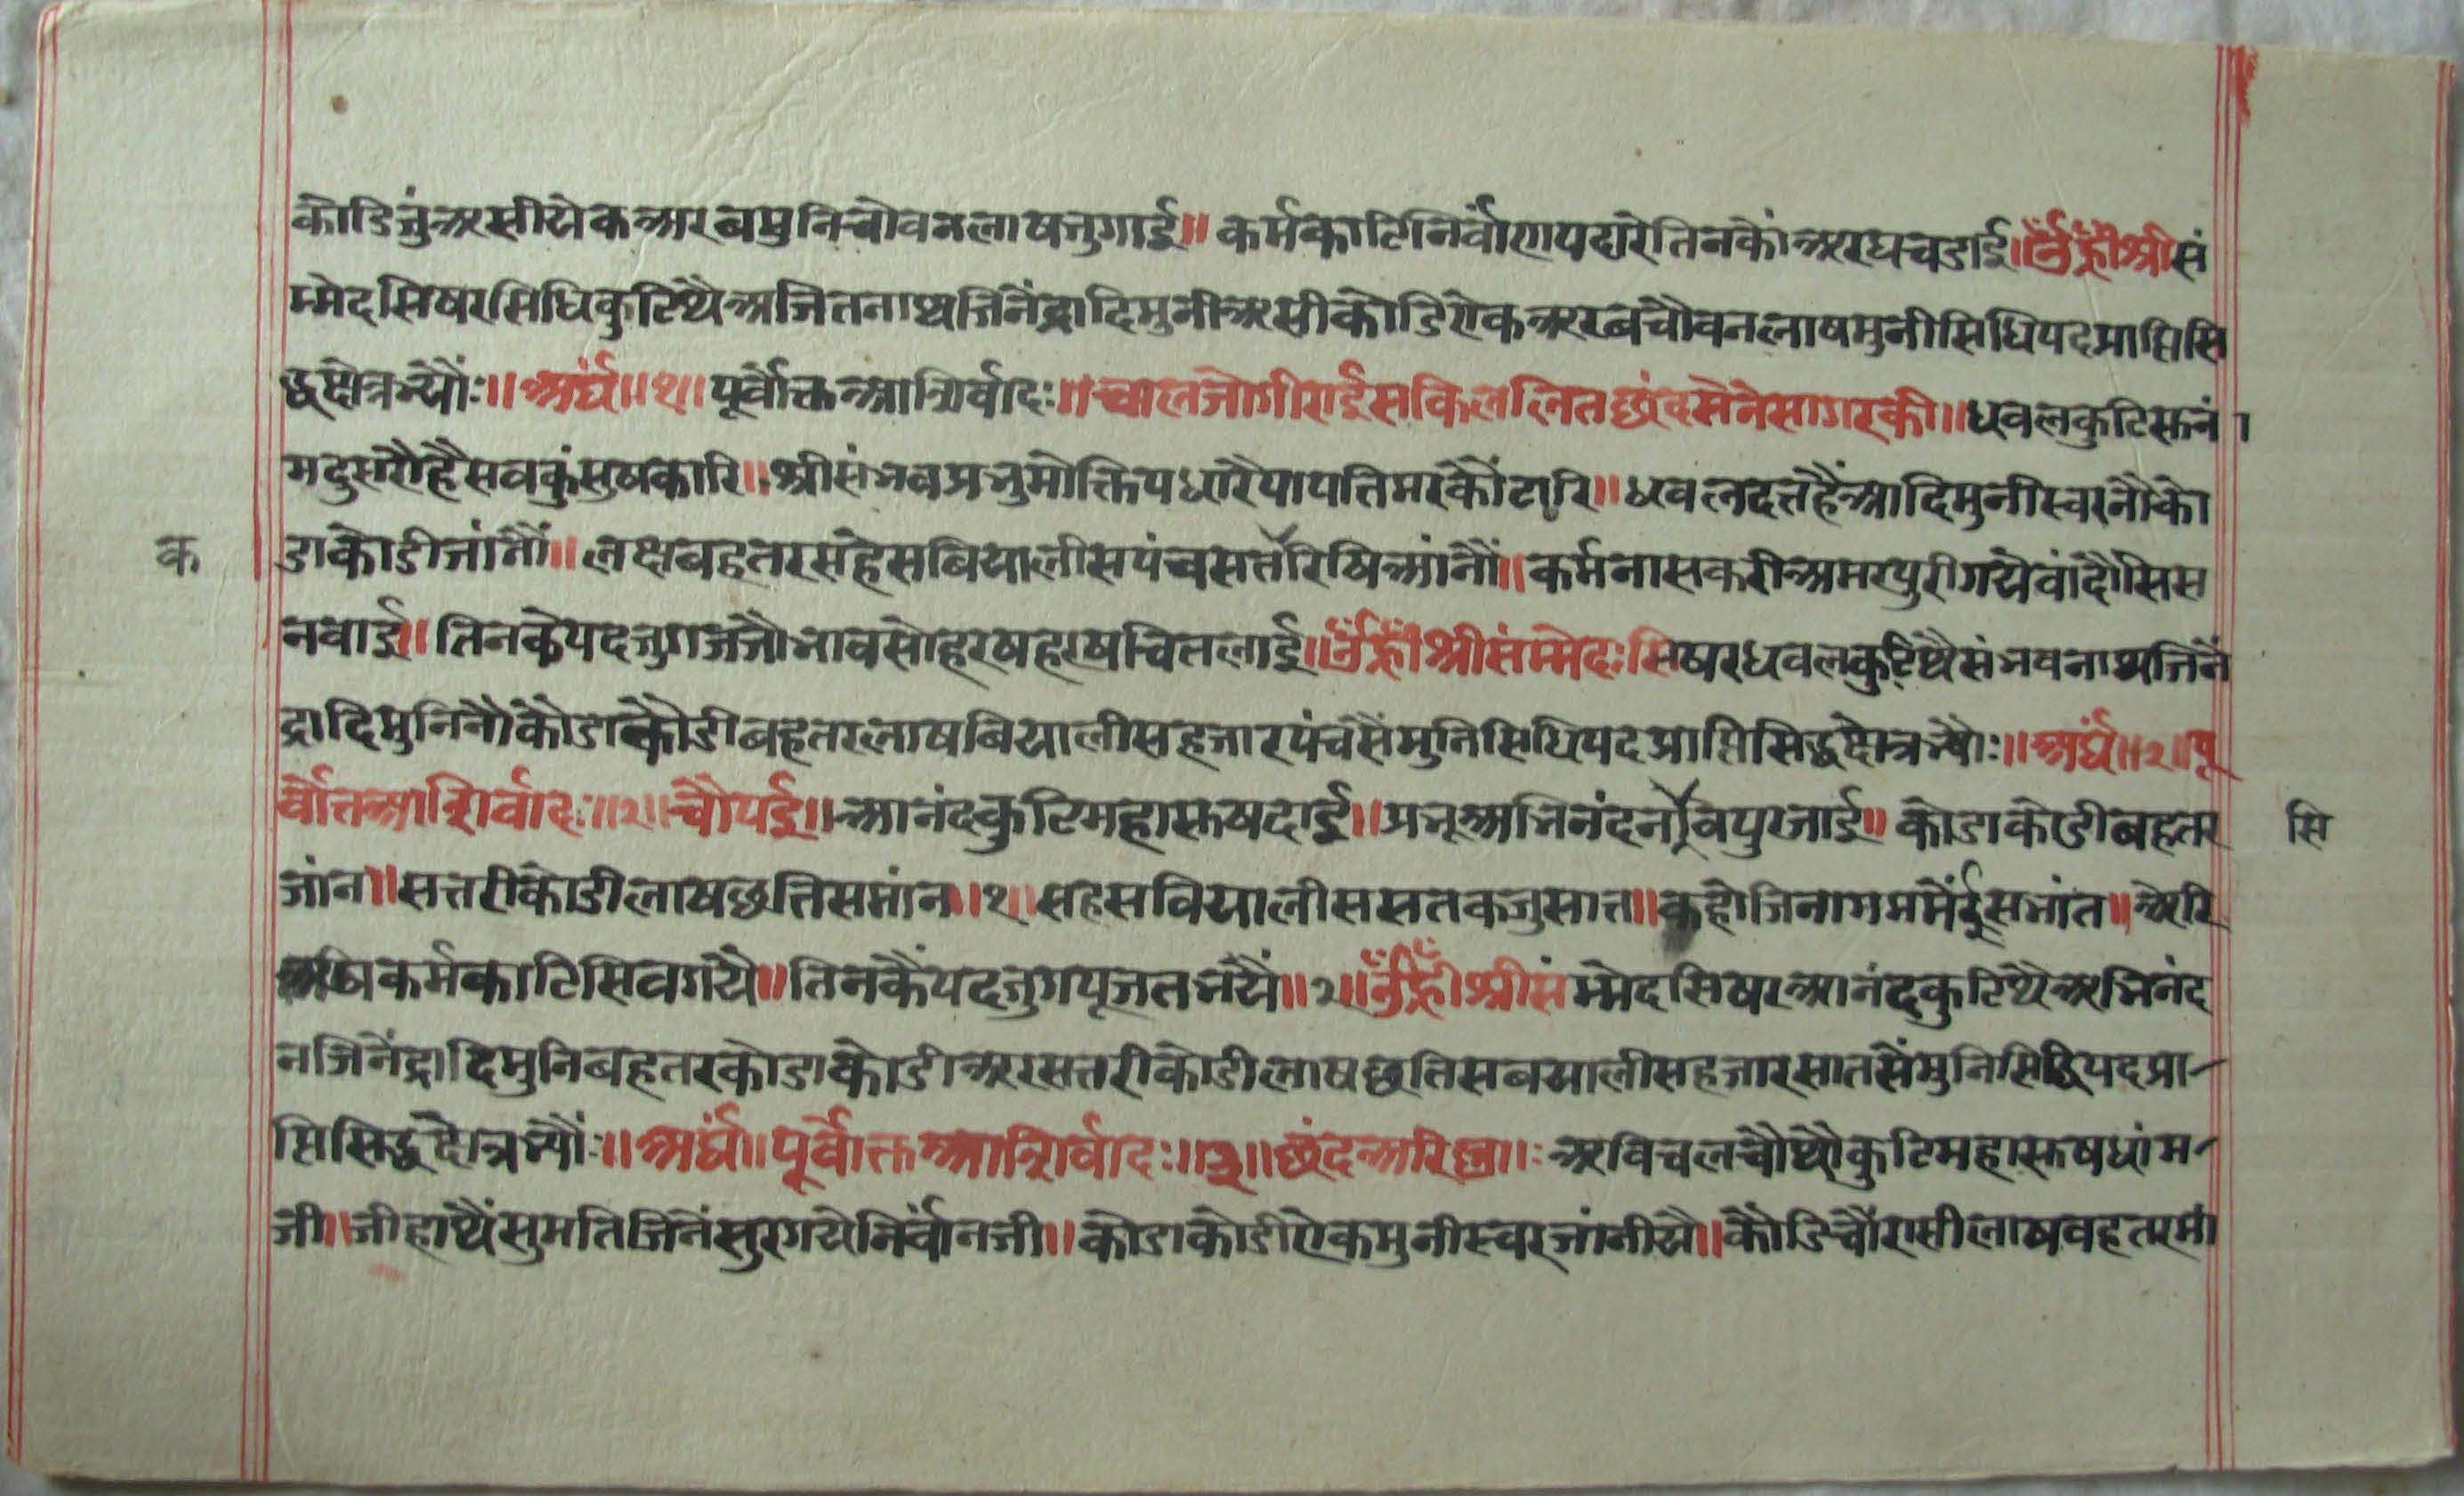 कोडिजुंअसीयेकअरबमुनिचोवनलाषजुगाई॥ कर्मकाटिनिर्वांणपद्यरेतिनकौंअरघचडाई॥ॐह्रीँश्रीसं
म्मेदसिषरसिधिकुटिथैअजितनाथजिनेंद्रादिमुनीअसीकोडिऐकअरबचौवनलाषमुनीसिधिपदप्राप्तिसि
द्धक्षेत्रभ्यौः॥अर्घं॥१॥पूर्वोक्तआशिर्वादः॥चालजोगीराईसकिललितछंदसैनेसागरकी॥धवलकुटिस्मनं।
मदुसरौहैसवकुंसुषकारि॥श्रीसंभवप्रभुमोक्तिपधारैपापतिमरकौंटारि॥धवलदत्तहैंआदिमुनीस्वरनौको
क
डाकोडीजांनौं॥लक्षबहतरसंहेसबियालीसपंचसतरिषिआंनौं॥कर्मनासकरीअमरपुरीगयेवांदौसिस
नवाई॥तिनकेपदजुगजजौभावसोहरषहरषचितलाई॥ॐह्रीँश्रीसंम्मेदःसिषरधवलकुटिथैसंभवनाथजिनें
द्रादिमुनिनौंकौडाकोडीबहतरलाषबियालीसहजारपंचसैंमुनिसिधिपदप्राप्तिसिद्धक्षेत्रभ्यौः॥अर्घं॥२॥पू
र्वोतआशिर्वादः॥२॥चौपई॥आनंदकुटिमहास्मषदाई॥प्रभूअभिनंदनवपुरजाई॥ कोडाकोडीबहतर
सि
जांन॥सत्तरीकोडीलाषछत्तिसमांन॥१॥सहसवियालीससतकजुसात॥कहोजिनागममैंईसभांत॥अैरि
अषिकर्मकाटिसिवगये॥तिनकैंपदजुगपूजतभंयें॥२॥ॐह्रीँश्रीसंम्मेदसिषरआनंदकुटिथैअभिनंद
नजिनेंद्रादिमुनिबहतरकोडाकोडीअरसत्तरीकोडीलाषछतिसबयालीसहजारसातसैंमुनिसिद्धिपदप्रा-
प्तिसिद्धक्षेत्रभ्यौंः॥अर्घं॥पूर्वोक्तआशिर्वादः॥३॥छंदअरिल्ल॥ः अविचलचौथोकुटिमहास्मषधांम-
जी॥जीहाथैंसुमतिजिनेंसुरगयेनिर्वांनजी॥ कोडाकोडीऐकमुनीस्वरजांनीयै॥कौडिचौंरासीलाषवहतरमां